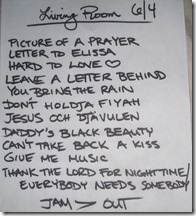 Living Room 6/4
PICTURE OF A PRAYER
LETTER TO ELISSA
HARD TO LOVE ♡
LEAVE A LETTER BEHIND
YOU BRING THE RAIN
DON'T HOLDJA FIYAH
JESUS OCH DJÄVULEN
DADDY'S BLACK BEAUTY
CAN'T TAKE BACK A KISS
GIVE ME MUSIC
THANK THE LORD FOR NIGHTTIME/
EVERYBODY NEEDS SOMEBODY
JAM > OUT